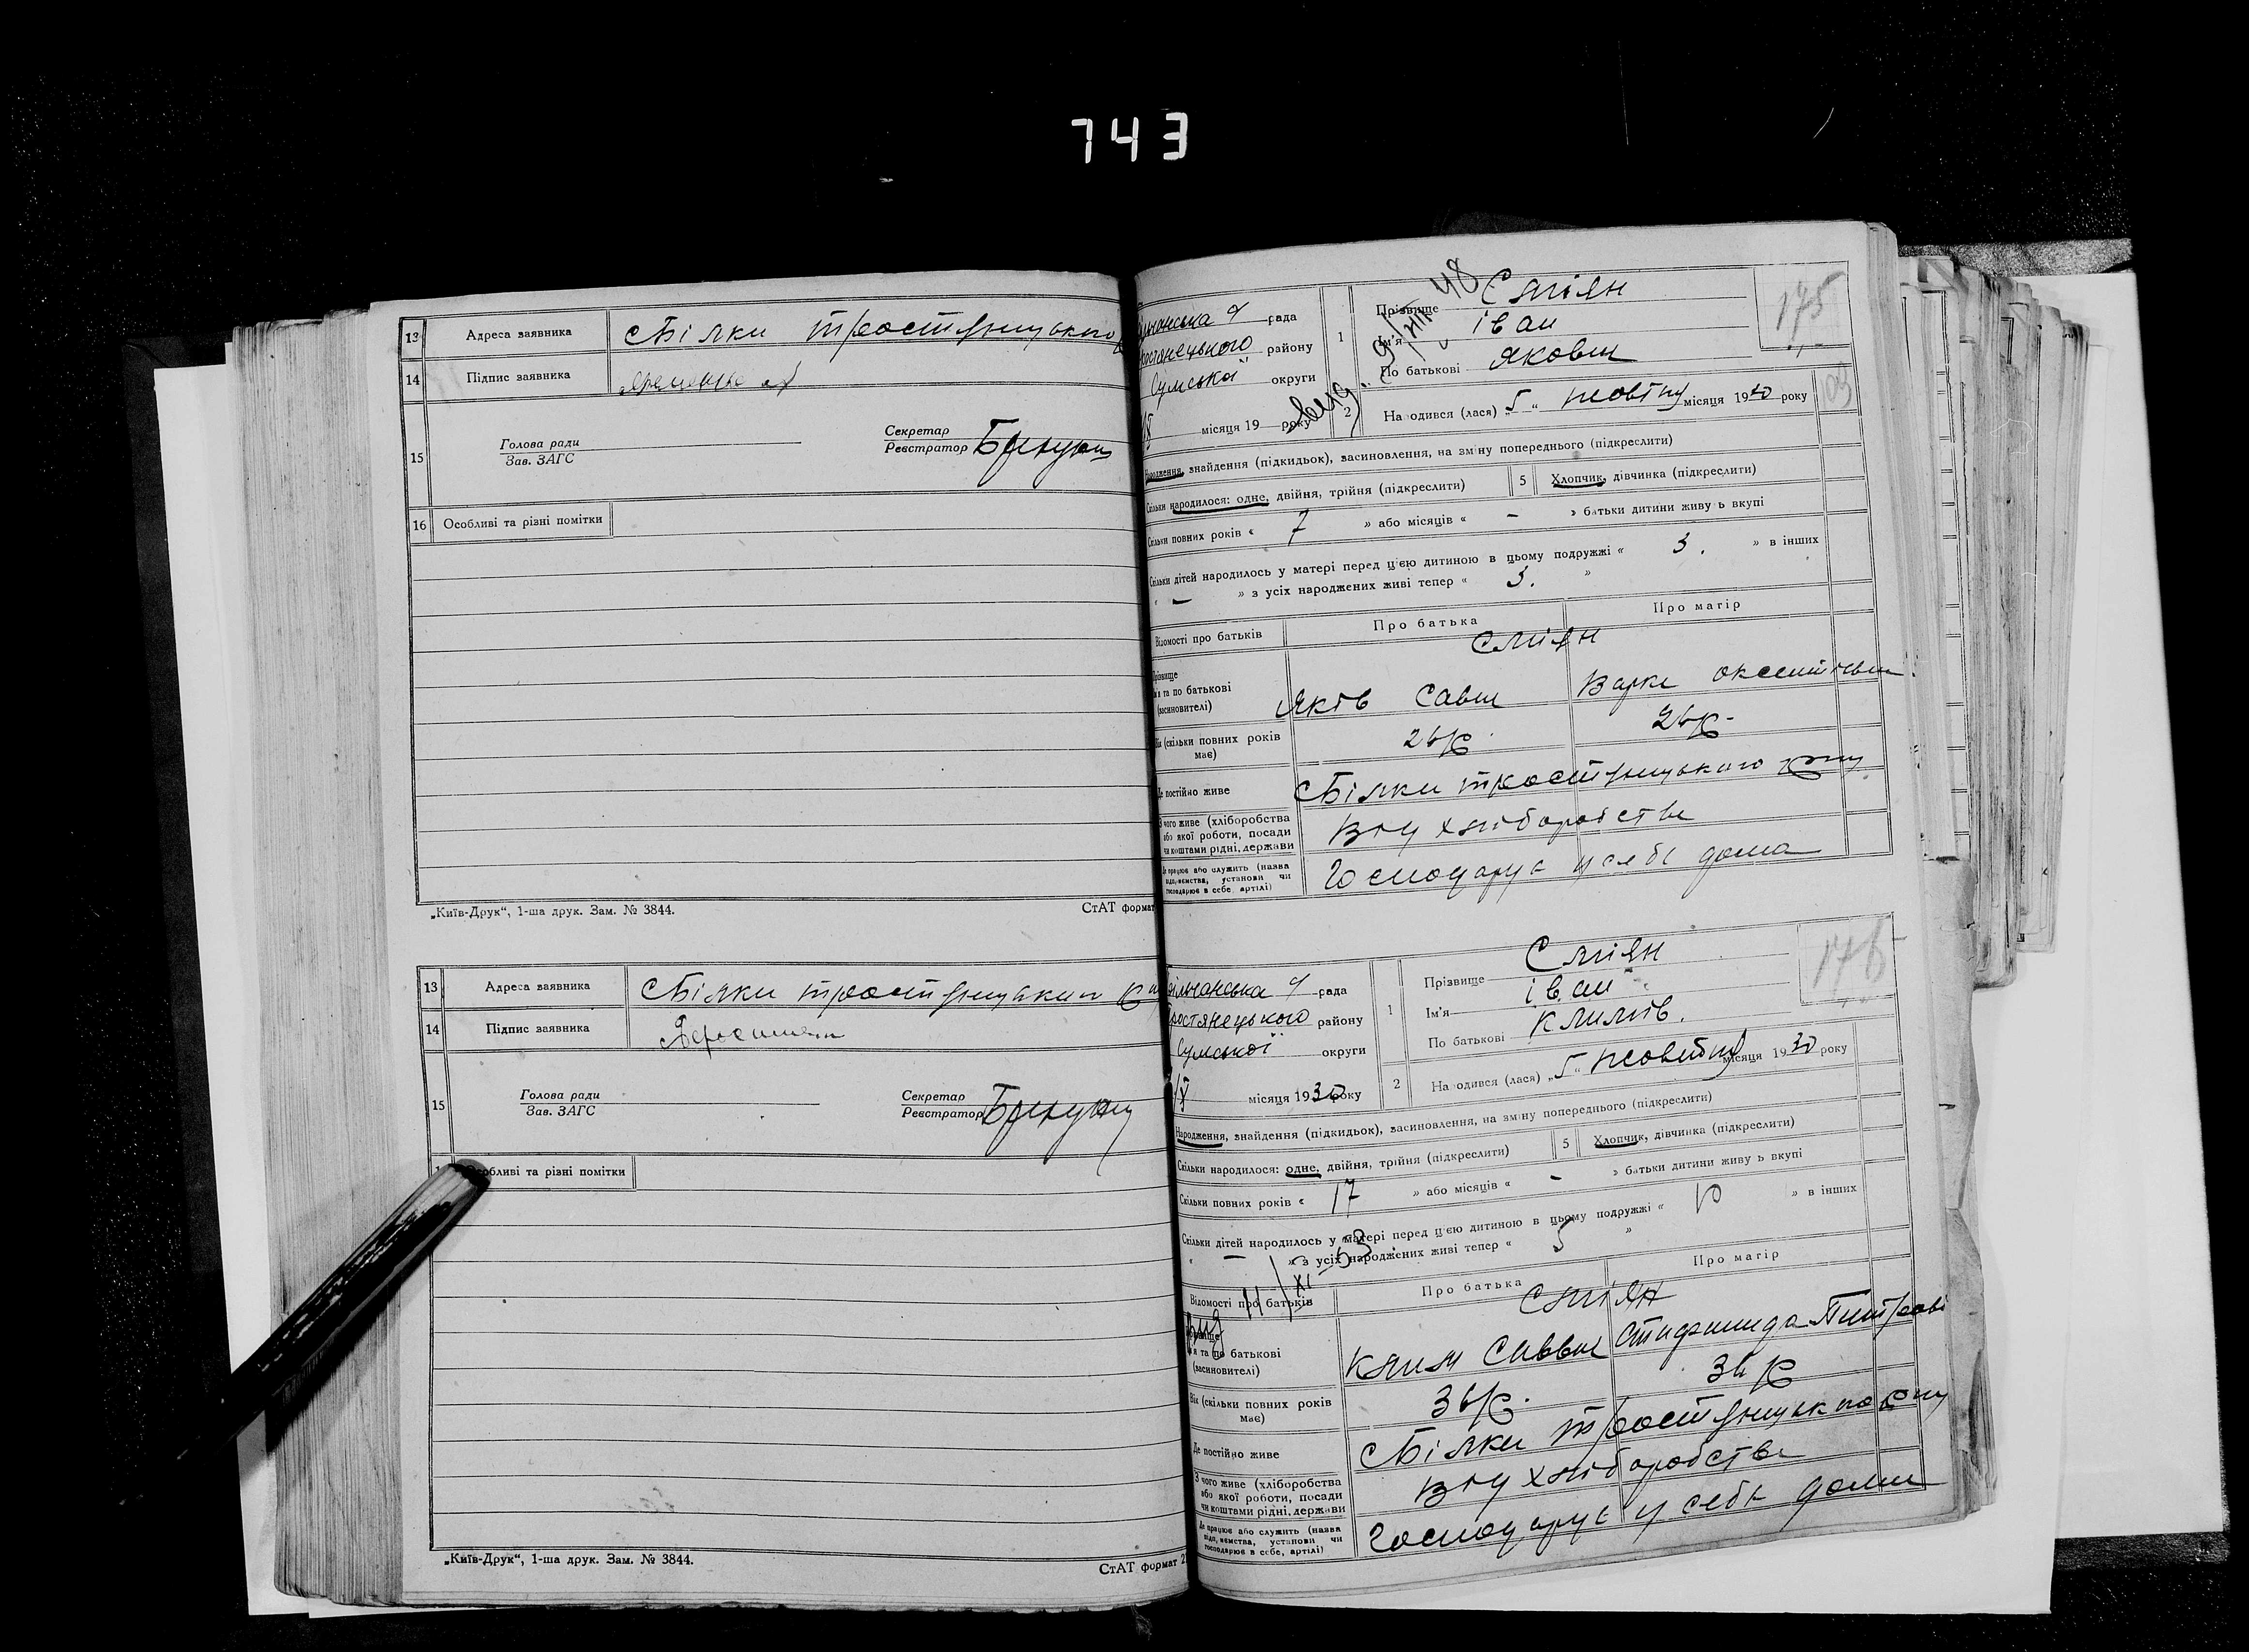 743
13 Адреса заявника с Білки тростянецького
14 Підпис заявника
15 Голова ради
Зав. ЗАГС
Секретар
Реєстратор
16 Особливі та різні помітки
„Київ-Друк“, 1-ша друк. Зам. № 3844. СтАТ формат
13 Адреса заявника с Білки
14 Підпис заявника
15 Голова ради
Зав. ЗАГС
Секретар
Реєстратор
Особливі та різні помітки
„Київ-Друк“, 1-ша друк. Зам. № 3844. СтАТ формат
рада
району
Сумської округи
місяця 19 року
48
175
1 Прізвище Сміян
Ім'я іван
По батькові Якович
2 Народився (лася) „5“ жовтня місяця 1930 року
Народження, знайдення (підкидьок), засиновлення, на зміну попереднього (підкреслити)
Скільки народилося: одне, двійня, трійня (підкреслити) 5 Хлопчик, дівчинка (підкреслити)
Скільки повних років « 7 » або місяців « – » батьки дитини живуть вкупі
Скільки дітей народилось у матері перед цією дитиною в цьому подружжі « 3. » в інших
« – » з усіх народжених живі тепер « 3. »
Відомості про батьків Про батька Про матір
Сміян
Прізвище
ім'я та по батькові
(засиновителі)
Яків Савич
Вік (скільки повних років
має)
26р. 26р.
Де постійно живе с Білки тростянецького
З чого живе (хліборобства
або якої роботи, посади
чи коштами рідні, держави
від хліборобства
Де працює або служить (назва
підприємства, установи чи
господарює в себе, артілі)
Господарує у себе дома
176
рада
Тростянецького району
Сумської округи
X місяця 1930 року
1 Прізвище Сміян
Ім'я іван
По батькові Климів.
2 Народився (лася) „5“ місяця 1930 року
Народження, знайдення (підкидьок), засиновлення, на зміну попереднього (підкреслити)
Скільки народилося: одне, двійня, трійня (підкреслити) 5 Хлопчик, дівчинка (підкреслити)
Скільки повних років « 17 » або місяців « – » батьки дитини живуть вкупі
Скільки дітей народилось у матері перед цією дитиною в цьому подружжі « 10 » в інших
« – » з усіх народжених живі тепер « 5 »
11/XI-53
Відомості про батьків Про батька Про матір
Сміян
Прізвище
ім'я та по батькові
(засиновителі)
Клим Саввич
Вік (скільки повних років
має)
36р. 36р
Де постійно живе с Білки
З чого живе (хліборобства
або якої роботи, посади
чи коштами рідні, держави
від хліборобства
Де працює або служить (назва
підприємства, установи чи
господарює в себе, артілі)
Господарує у себе доми